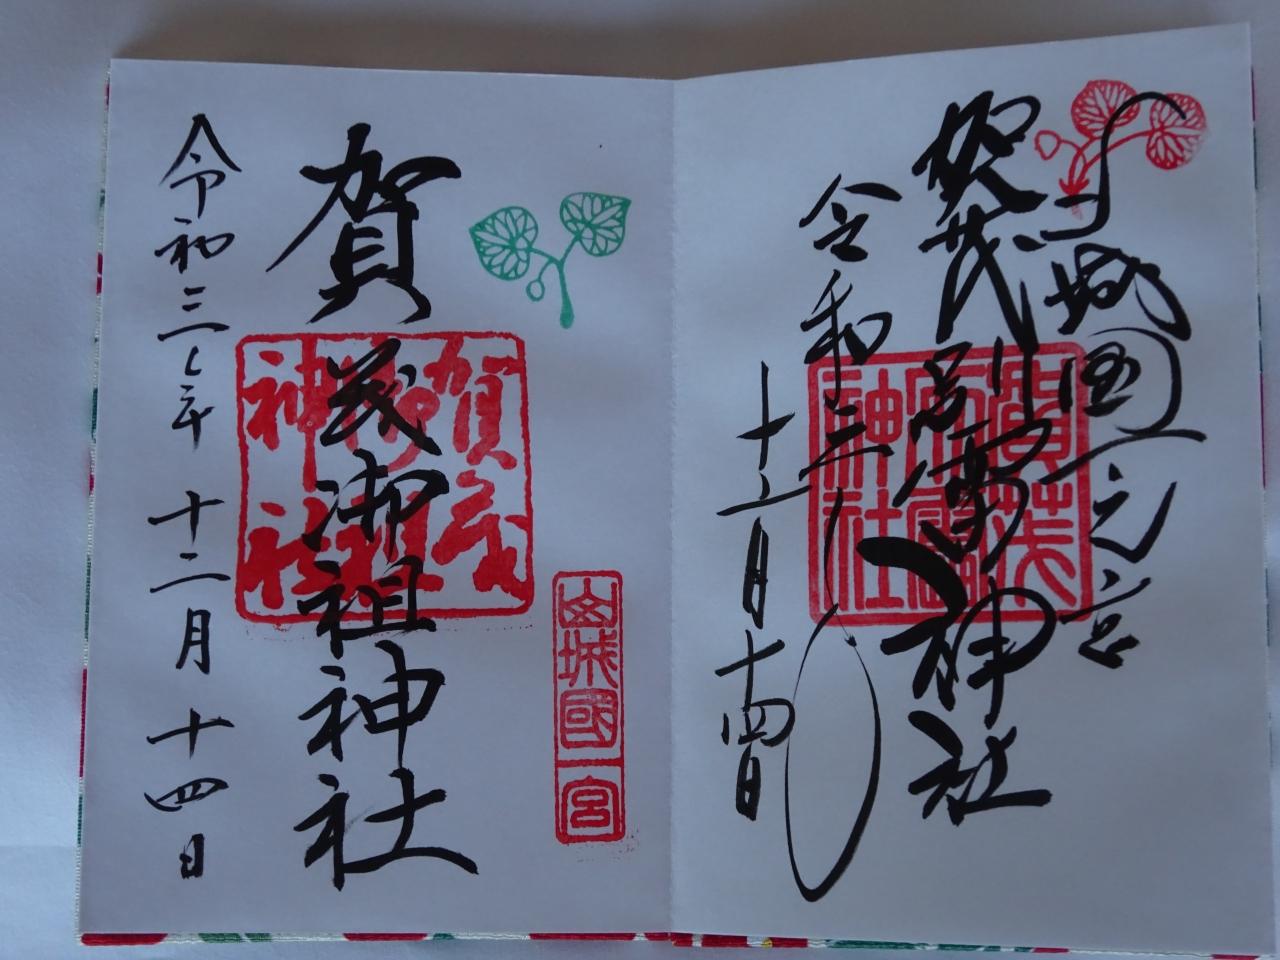 山城國一之宮
賀茂別雷神社
賀茂別雷神社
令和三年
十二月十四日
山城國一宮
賀茂御祖神社
賀茂御祖神社
令和三年十二月十四日